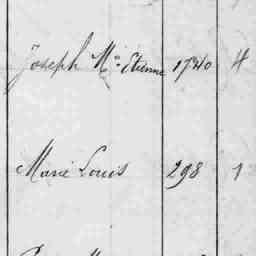 Joseph Mc Etienne 1740 4
Marie Louis 298 1